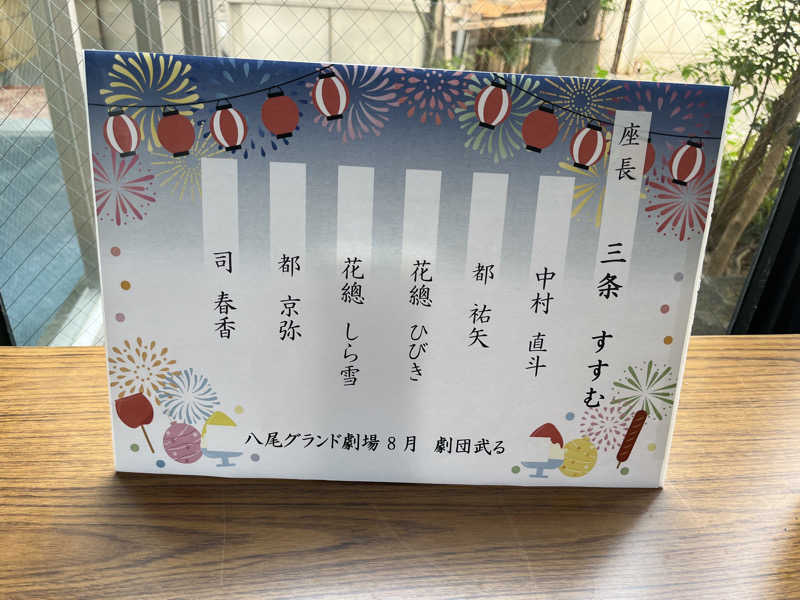 座長 三条 すすむ
中村 直斗
都 祐矢
花總 ひびき
花總 しら雪
都 京弥
司 春香
八尾グランド劇場8月 劇団武る